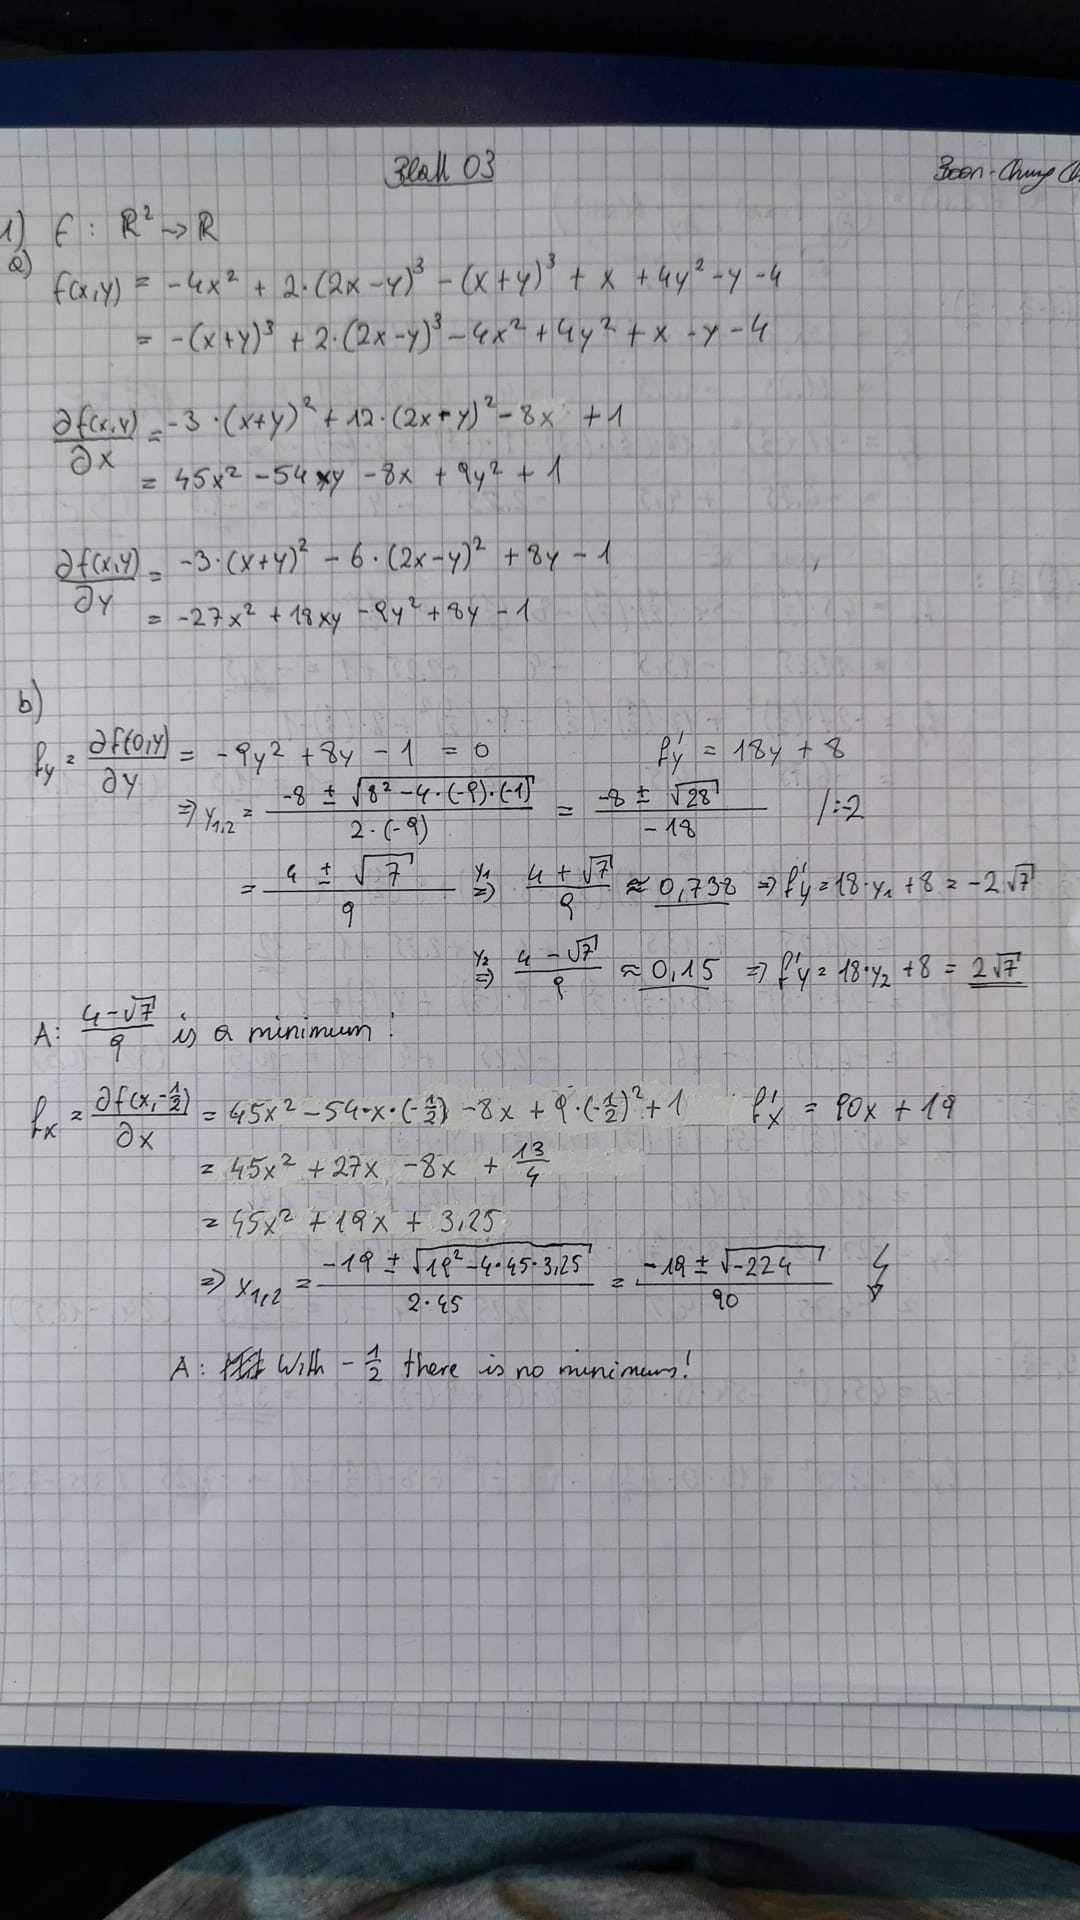 Blatt 03
Boon-Chung
1) f : ℝ² → ℝ
a)
f(x,y) = -4x² + 2·(2x-y)³ - (x+y)³ + x + 4y² - y - 4
= -(x+y)³ + 2·(2x-y)³ - 4x² + 4y² + x - y - 4
∂f(x,y)/∂x = -3·(x+y)² + 12·(2x-y)² - 8x + 1
= 45x² - 54xy - 8x + 9y² + 1
∂f(x,y)/∂y = -3·(x+y)² - 6·(2x-y)² + 8y - 1
= -27x² + 18xy - 9y² + 8y - 1
b)
fy = ∂f(0,y)/∂y = -9y² + 8y - 1 = 0 f'y = 18y + 8
⇒ y1,2 = (-8 ± √(8² - 4·(-9)·(-1)))/(2·(-9)) = (-8 ± √28)/(-18) /:-2
= (4 ± √7)/9 y1⇒ (4+√7)/9 ≈ 0,738 ⇒ f'y = 18·y1 + 8 = -2√7
y2⇒ (4-√7)/9 ≈ 0,15 ⇒ f'y = 18·y2 + 8 = 2√7
A: (4-√7)/9 is a minimum!
fx = ∂f(x,-1/2)/∂x = 45x² - 54·x·(-1/2) - 8x + 9·(-1/2)² + 1 f'x = 90x + 19
= 45x² + 27x - 8x + 13/4
= 45x² + 19x + 3,25
⇒ x1,2 = (-19 ± √(19² - 4·45·3,25))/(2·45) = (-19 ± √-224)/90 ↯
A: With -1/2 there is no minimum!